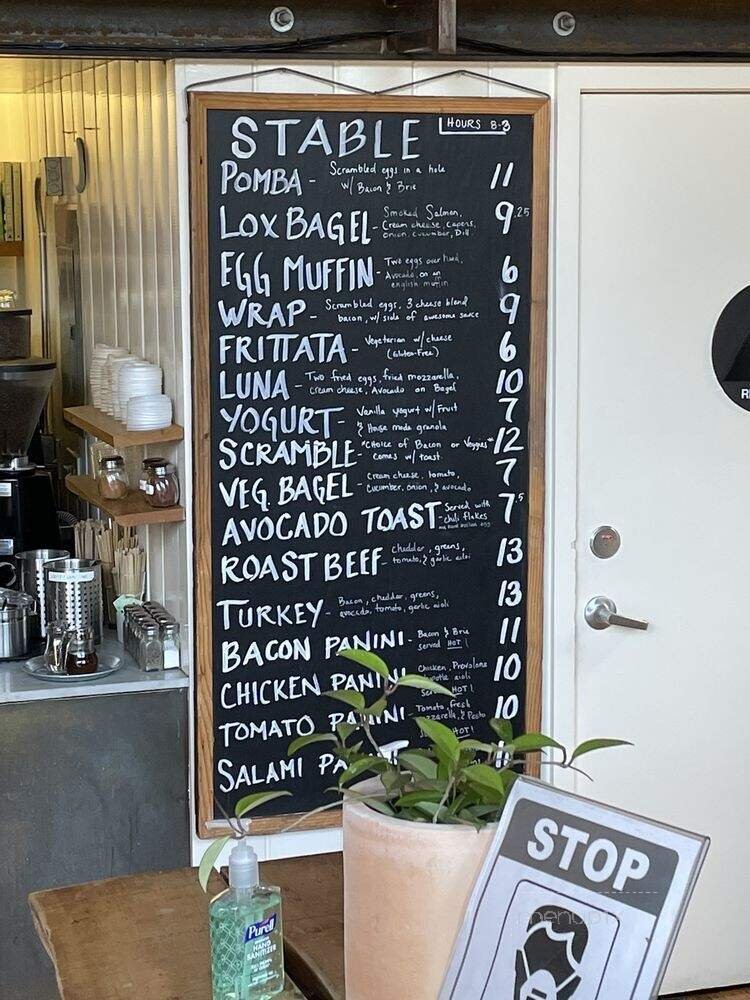 STABLE
HOURS 8-3
POMBA - Scrambled eggs in a hole 11
w/ Bacon & Brie
LOX BAGEL - Smoked Salmon, 9.25
Cream cheese, Capers,
onion, cucumber, Dill
EGG MUFFIN - Two eggs over hard, 6
Avocado, on an
english muffin
WRAP - Scrambled eggs, 3 cheese blend 9
bacon, w/ side of awesome sauce
FRITTATA - Vegetarian w/ cheese 6
(Gluten-Free)
LUNA - Two fried eggs, fried mozzarella, 10
Cream cheese, Avocado on Bagel
YOGURT - Vanilla yogurt w/ Fruit 7
& House made granola
SCRAMBLE - *Choice of Bacon or Veggies* 12
Comes w/ toast
VEG. BAGEL - Cream cheese, tomato, 7
Cucumber, onion, & avocado
AVOCADO TOAST - Served with 7.5
chili flakes
ROAST BEEF - cheddar, greens, 13
tomato, & garlic aioli
TURKEY - Bacon, cheddar, greens, 13
avocado, tomato, garlic aioli
BACON PANINI - Bacon & Brie 11
served HOT!
CHICKEN PANINI Chicken, Provolone 10
aioli
HOT!
TOMATO PANINI - Tomato, fresh 10
& Pesto
HOT!
SALAMI PA
STOP
Purell
HAND
SANITIZER
menupix
R